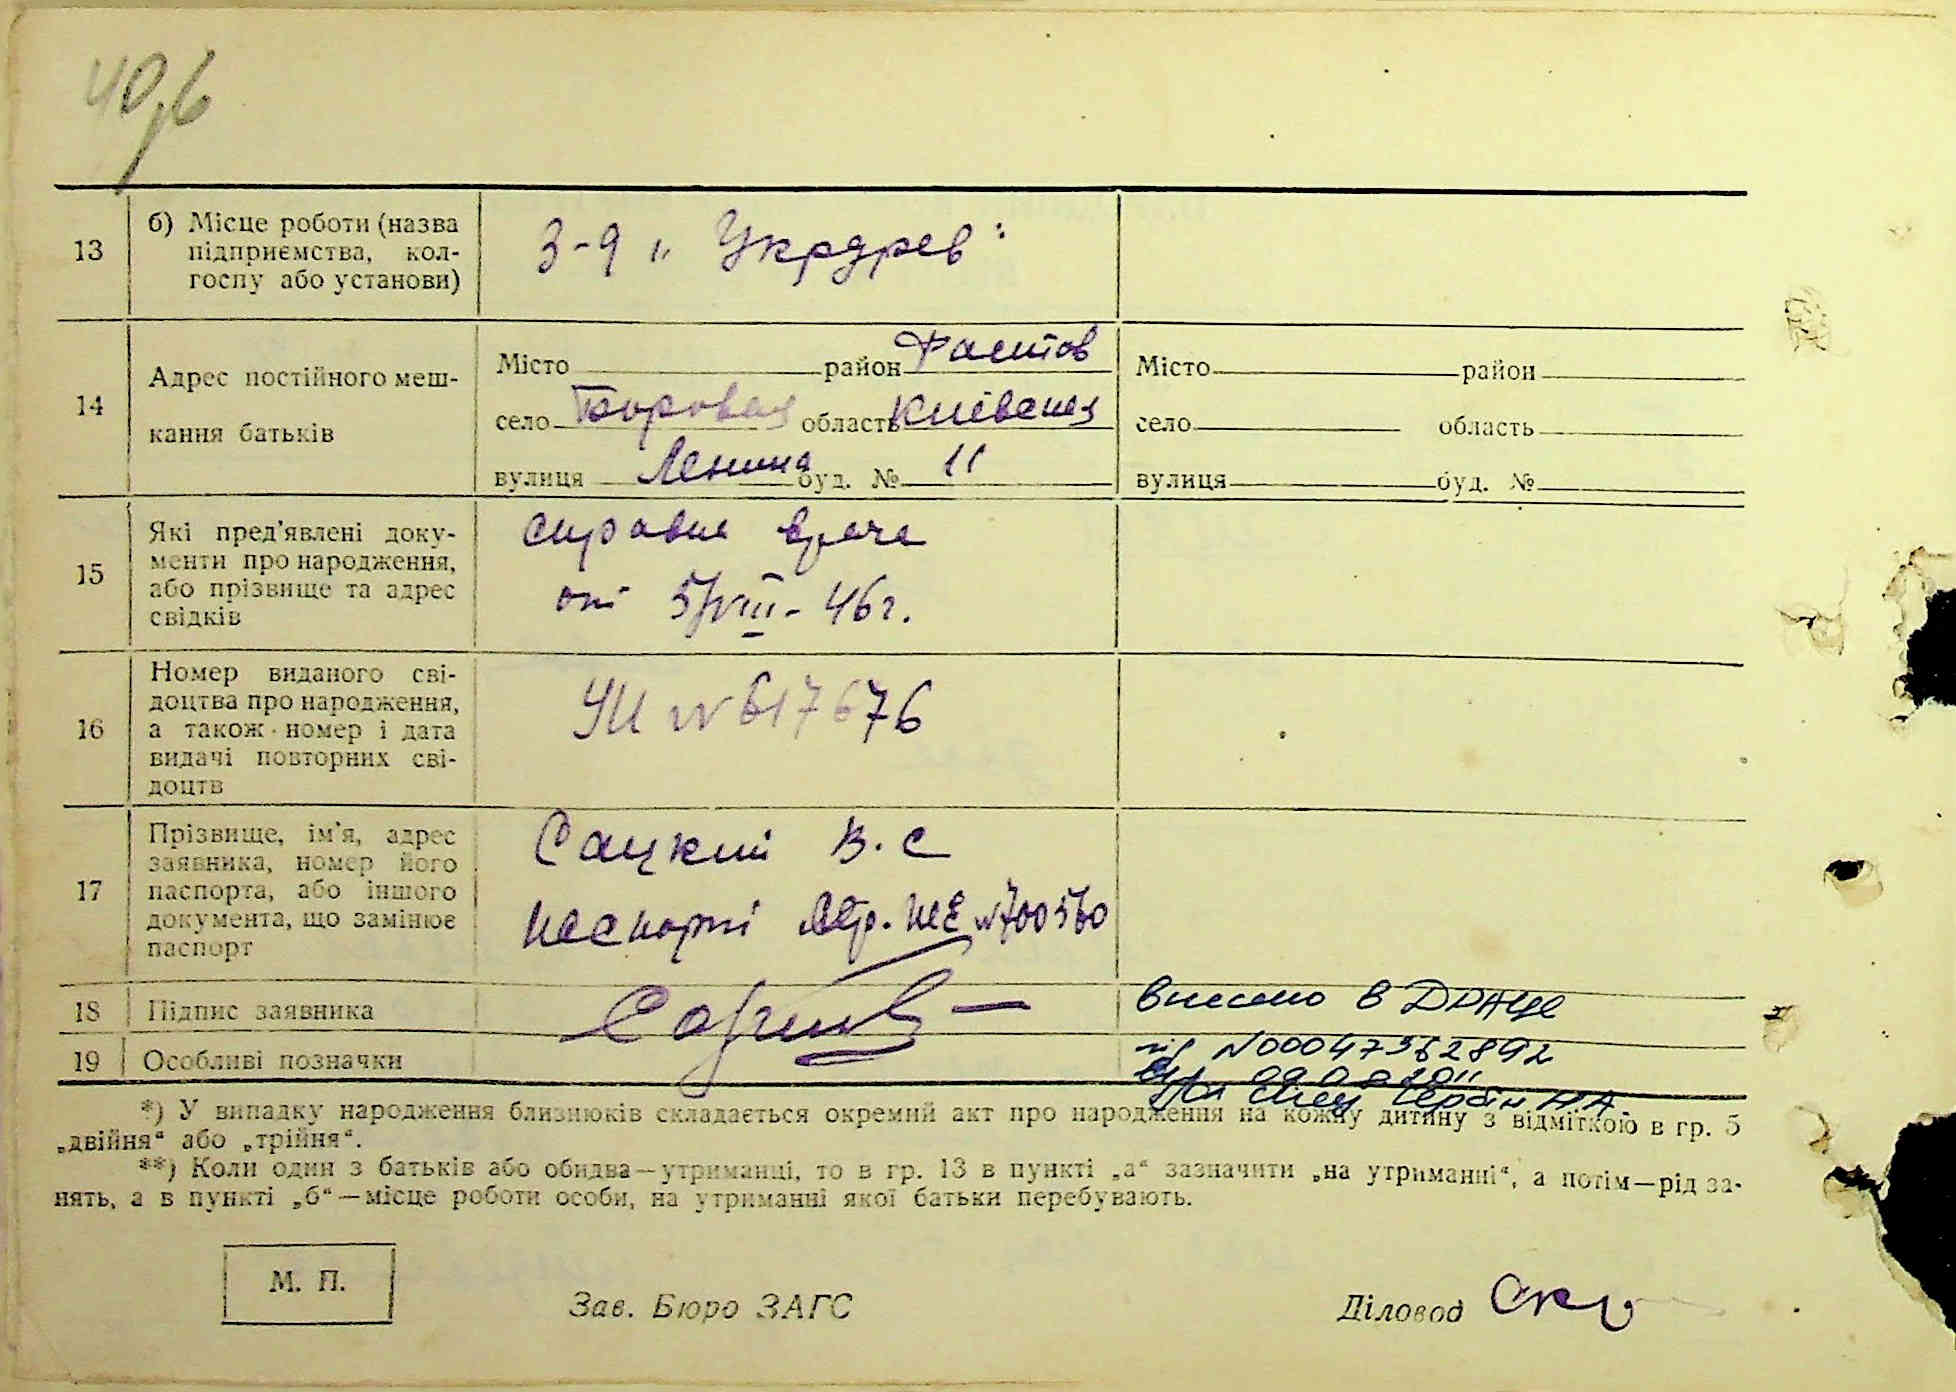 40
13
б) Місце роботи (назва
підприємства, кол-
госпу або установи)
З-д „Укрдрев"
14
Адрес постійного меш-
кання батьків
Місто район Фастов
село Боровая область Киевская
вулиця Ленина буд. № 11
Місто район
село область
вулиця буд. №
15
Які пред'явлені доку-
менти про народження,
або прізвище та адрес
свідків
справка врача
от 5/VIII-46г.
16
Номер виданого сві-
доцтва про народження,
а також номер і дата
видачі повторних сві-
доцтв
УШ № 617676
17
Прізвище, ім'я, адрес
заявника, номер його
паспорта, або іншого
документа, що замінює
паспорт
Сацкий В.С
паспорт № 700560
18
Підпис заявника
внесено в ДРАЦС
19
Особливі позначки
під N00047362892
спец
*) У випадку народження близнюків складається окремий акт про народження на кожну дитину з відміткою в гр. 5
„двійня" або „трійня".
**) Коли один з батьків або обидва—утриманці, то в гр. 13 в пункті „а" зазначити „на утриманні", а потім—рід за-
нять, а в пункті „б"—місце роботи особи, на утриманні якої батьки перебувають.
М. П.
Зав. Бюро ЗАГС
Діловод